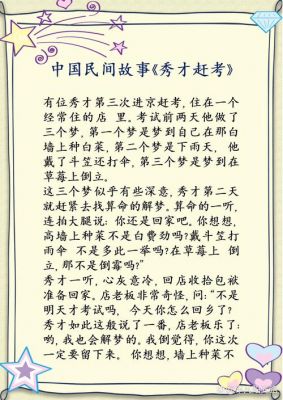 中国民间故事《秀才赶考》
有位秀才第三次进京赶考,住在一个
经常住的店 里。考试前两天他做了
三个梦,第一个梦是梦到自己在那白
墙上种白菜,第二个梦是下雨天, 他
戴了斗笠还打伞,第三个梦是梦到在
草蓦上倒立。
这三个梦似乎有些深意,秀才第二天
就赶紧去找算命的解梦。算命的一听,
连拍大腿说: 你还是回家吧。你想想,
高墙上种菜不是白费劲吗?戴斗笠打
雨伞 不是多此一举吗?在草蓦上 倒
立,那不是倒霉吗?”
秀才一听,心灰意冷,回店收拾包袱
准备回家。店老板非常奇怪,问:“不是
明天才考试吗, 今天你怎么回乡了?
秀才如此这般说了一番,店老板乐了:
哟,我也会解梦的。我倒觉得,你这次
一定要留下来。 你想想,墙上种菜不